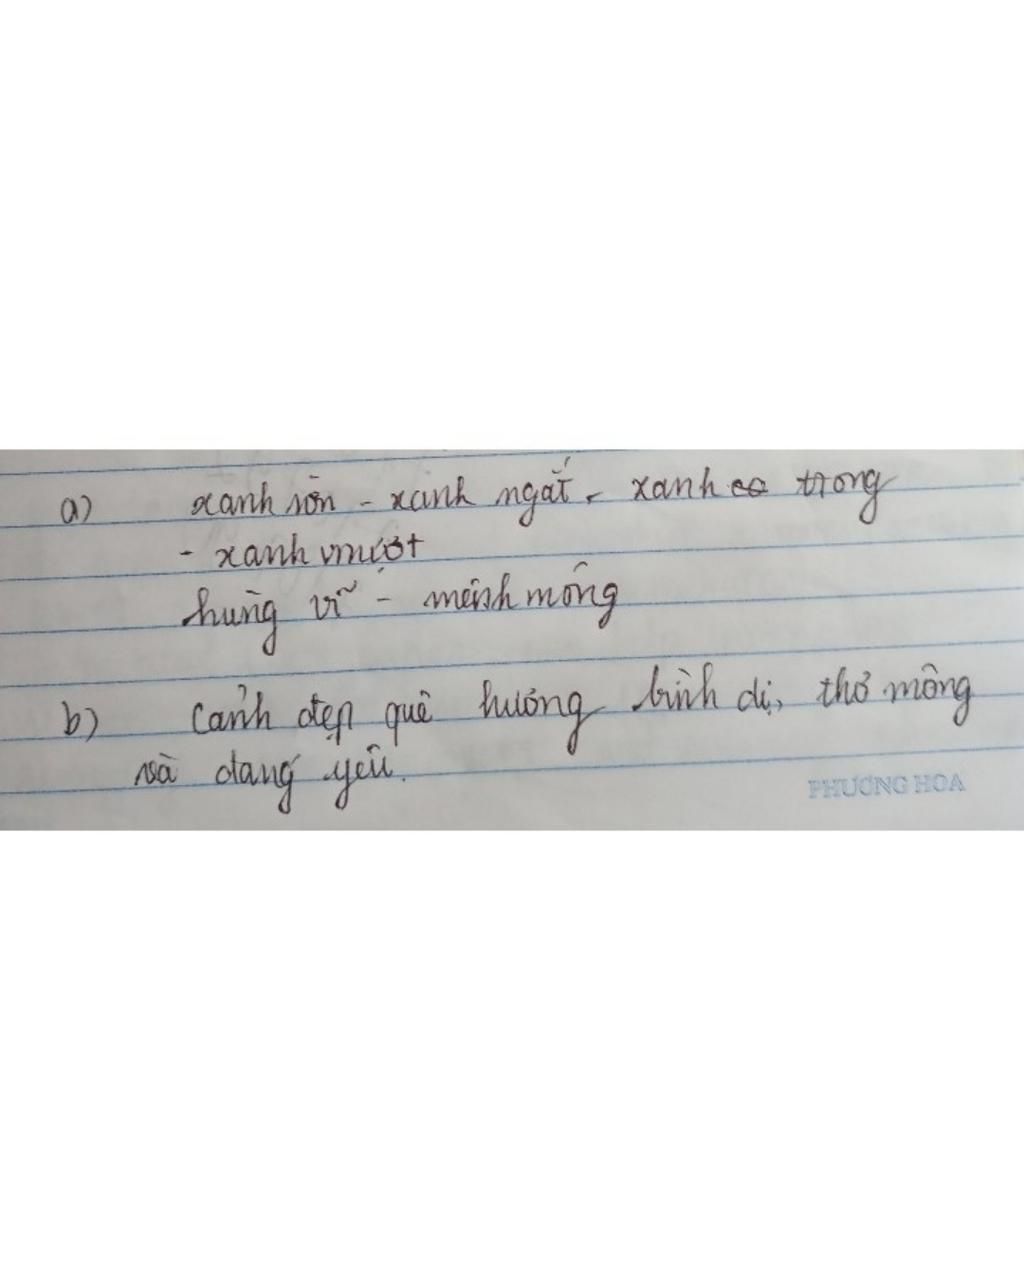 a) xanh rờn - xanh ngắt - xanh trong
- xanh mượt
hùng vĩ - mênh mông
b) Cảnh đẹp quê hương bình dị, thơ mộng
và đáng yêu.
PHƯƠNG HOA